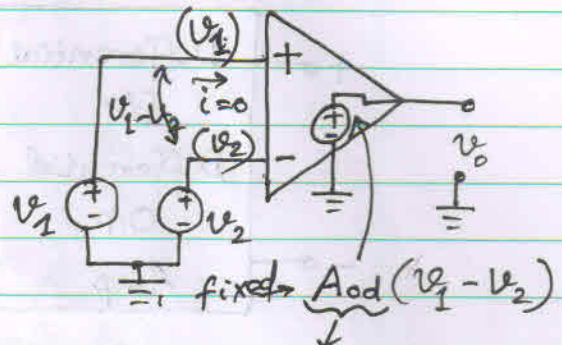 (v₁)
+
i=0
v₁-v₂
(v₂)
-
+
-
v₀
+
-
v₁
+
-
v₂
fixed → Aod (v₁ - v₂)